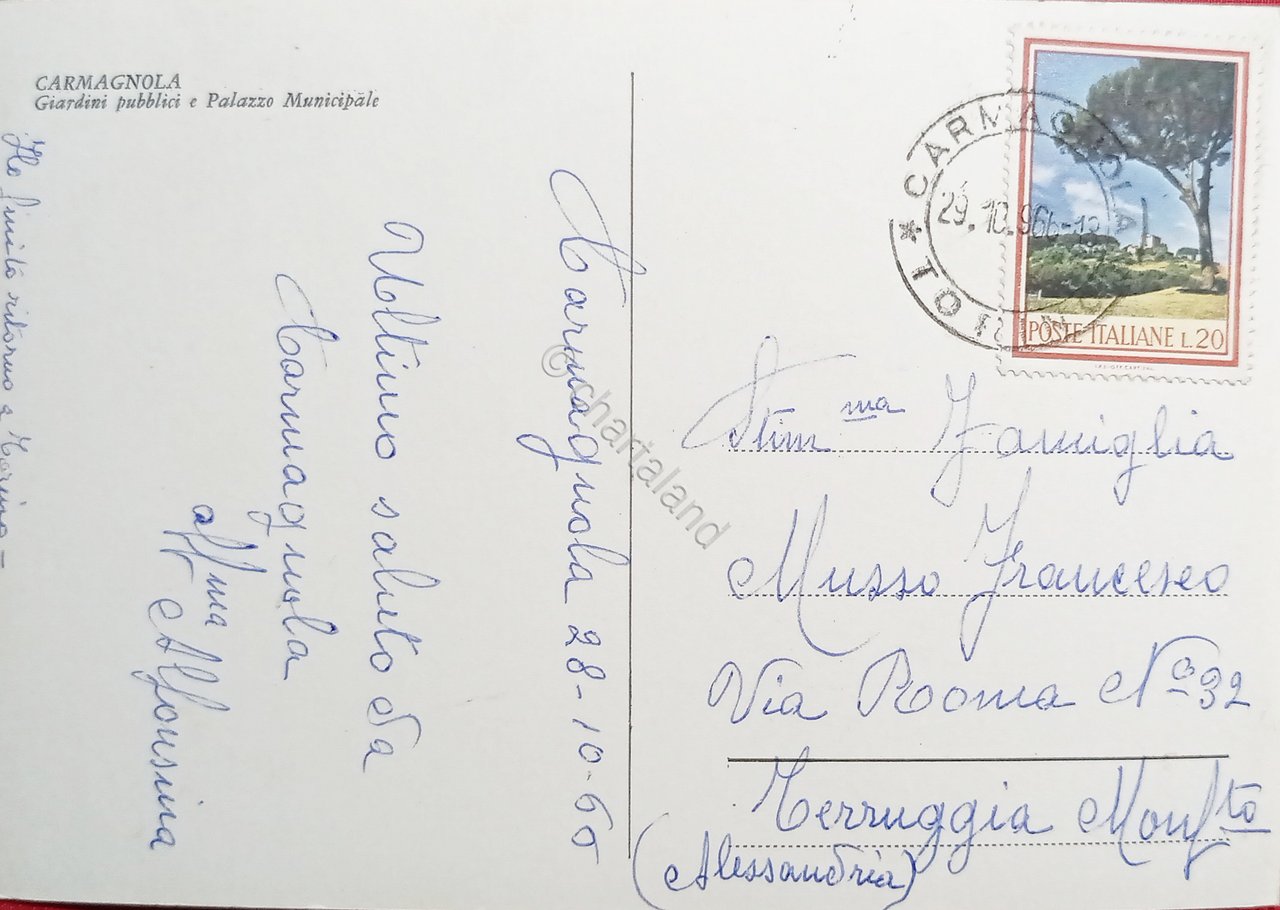 CARMAGNOLA
Giardini pubblici e Palazzo Municipale
Carmagnola 28-10-66
Ultimo saluto da
Carmagnola
aff.ma
Alfonsina
Ho finito ritorno a Torino =
CARMAGNOLA
29.10.966-12
* TO
POSTE ITALIANE L.20
Stim.ma Famiglia
Musso Francesco
Via Rooma Nº 32
Terruggia Monf.to
(Alessandria)
© chartaland